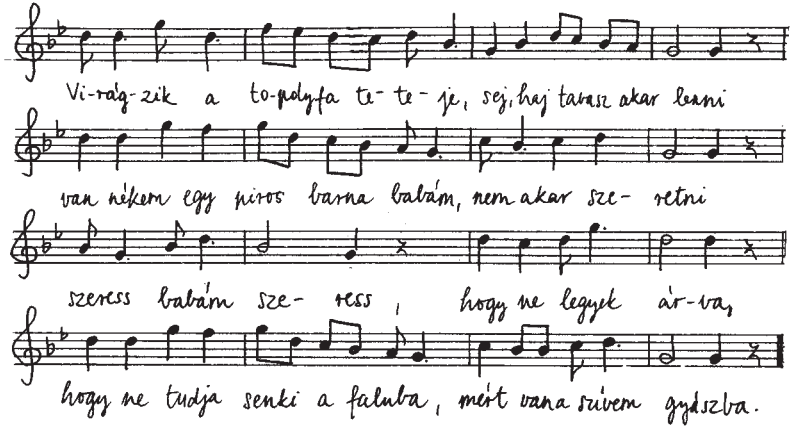 Vi-rág-zik a to-polyfa te-te-je, sej, haj tavasz akar lenni
van nékem egy piros barna babám, nem akar sze-retni
szeress babám sze-ress, hogy ne legyek ár-va,
hogy ne tudja senki a faluba, mért van a szívem gyászba.